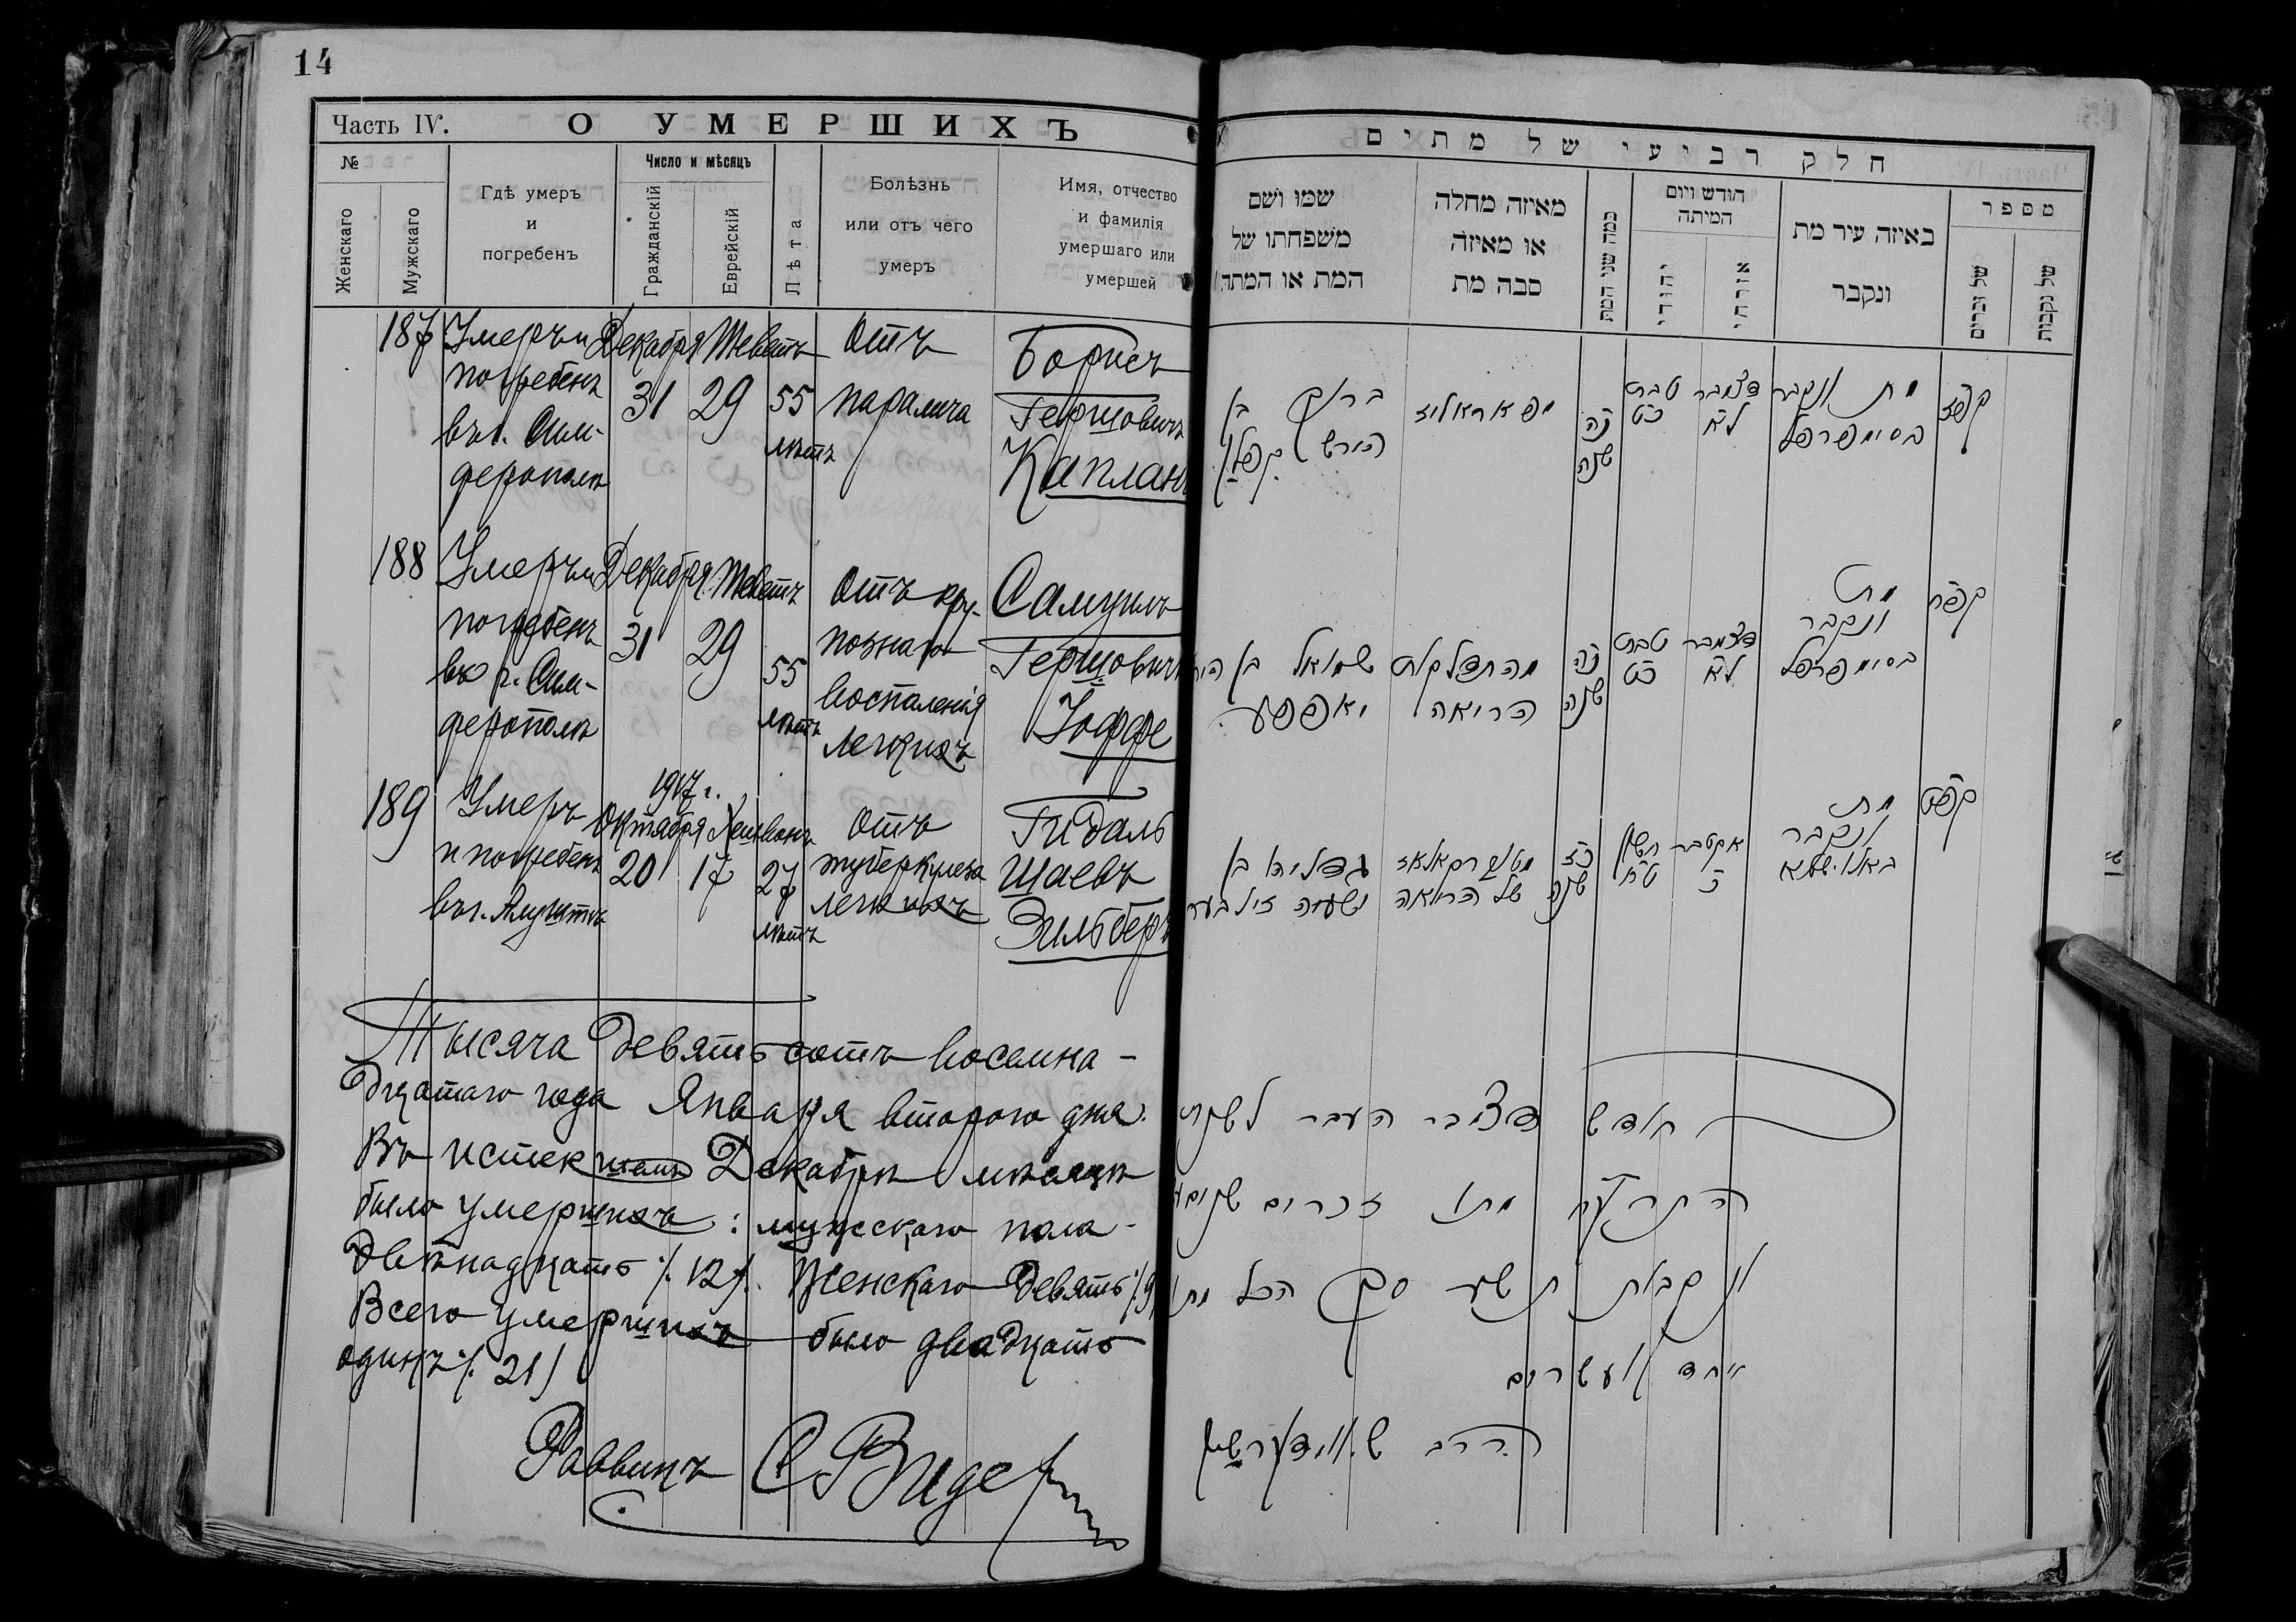 14
Часть IV. О УМЕРШИХЪ
№
Женскаго
Мужскаго
Гдѣ умеръ
и
погребенъ
Число и мѣсяцъ
Гражданскій
Еврейскій
Лѣта
Болѣзнь
или отъ чего
умеръ
Имя, отчество
и фамилія
умершаго или
умершей
187
Умеръ и
погребенъ
въ г. Сим-
ферополѣ
Декабря
31
Теветъ
29
55
лѣтъ
Отъ
паралича
Борисъ
Гершовичъ
Капланъ
188
Умеръ и
погребенъ
въ г. Сим-
ферополѣ
Декабря
31
Теветъ
29
55
лѣтъ
Отъ кру-
познаго
воспаленія
легкихъ
Самуилъ
Гершовичъ
Іоффе
189
Умеръ
и погребенъ
въ г. Алуштѣ
1917 г.
Октября
20
Хешванъ
17
27
лѣтъ
Отъ
туберкулеза
легкихъ
Гидаль
Шаевъ
Зильберъ
Тысяча девятьсотъ восемна-
дцатаго года Января второго дня.
Въ истекшемъ Декабрѣ мѣсяцѣ
было умершихъ: мужескаго пола -
двѣнадцать /.12/. Женскаго девять /.9/
Всего умершихъ было двадцать
одинъ /.21/
Раввинъ
חלק רביעי של מתים
שמו ושם
משפחתו של
המת או המתה
מאיזה מחלה
או מאיזה
סבה מת
כמה שני המת
חודש ויום
המיתה
יהודי
אזרחי
באיזה עיר מת
ונקבר
מספר
של זכרים
של נקבות
קפז
מת ונקבר
בסימפרפל
דצמבר
לא
טבת
כט
נה
שנה
ברוך בן
הירש קפלן
קפח
מת
ונקבר
בסימפרפל
דצמבר
לא
טבת
כט
נה
שנה
מהתדלקות
הריאה
שמואל בן
יאפפע
קפט
מת
ונקבר
אקטבר
כ
חשון
כז
שנה
של הריאה
גדליהו בן
ישעיה זילבער
חודש דצמבר העבר לשנת
מתו זכרים
ונקבות תשע סך הכל מתו
אחד ועשרים
הרב